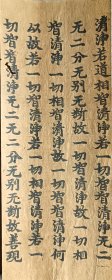 清淨若道相智清淨若一切智智清淨无二
无二分无別无斷故一切智清淨故一切相
智清淨一切相智清淨故一切智智清淨何
以故若一切智清淨若一切相智清淨若一
切智智清淨无二无二分无別无斷故善現